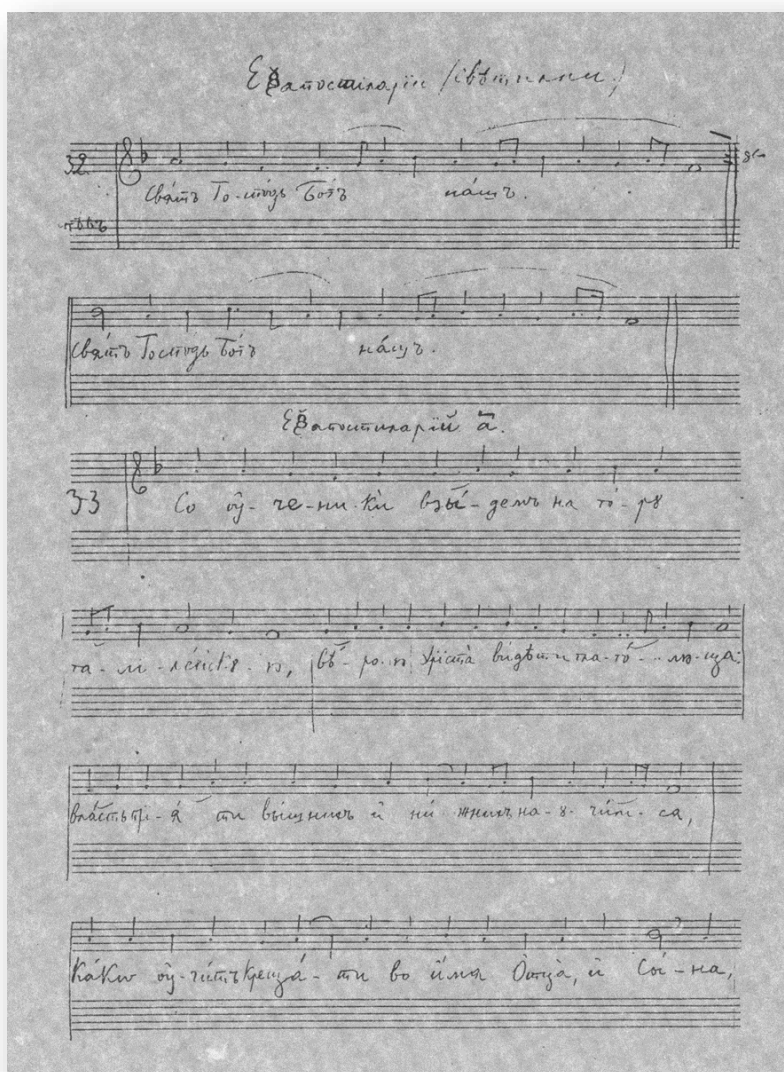 Еѯапостиларїи (свѣтильни)
32
Свѧ́тъ Го-спо́дь Бо́гъ на́шъ.
Свѧ́тъ Госпо́дь Бо́гъ на́шъ.
Еѯапостиларїй а҃.
33 Со ѹ҆-че-ни-ки̑ взы́-демъ на го́-рꙋ
га-ли-ле́йскꙋ-ю, вѣ́-ро-ю Хрїста̀ ви́дѣти гла-го́-лю-ща:
вла́сть прї-ѧ́ ти вы́шнихъ и҆ ни́ жнихъ на-ꙋ-чи́м-сѧ,
Ка́кѡ ѹ҆-чи́тъ креща́-ти во и҆́мѧ Ѻ҆тца̀, и҆ Сы́-на,